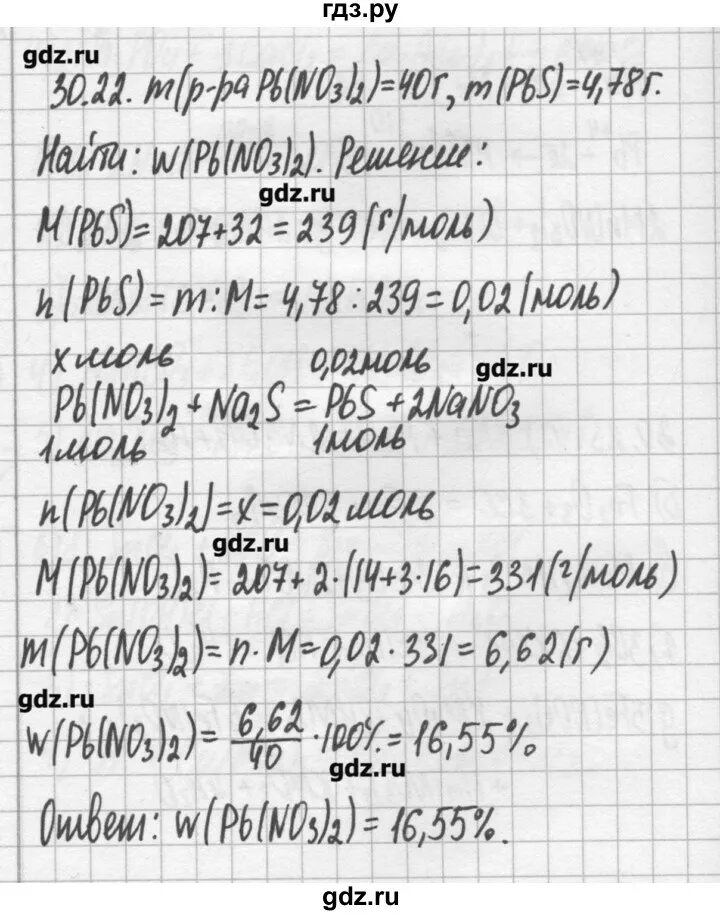 гдз.ру
gdz.ru
30.22. m(р-ра Pb(NO₃)₂)=40г, m(PbS)=4,78г.
Найти: w(Pb(NO₃)₂). Решение:
gdz.ru
M(PbS)=207+32=239(г/моль)
n(PbS)=m:M=4,78:239=0,02(моль)
x моль 0,02моль gdz.ru
Pb(NO₃)₂+Na₂S=PbS+2NaNO₃
1моль 1моль
n(Pb(NO₃)₂)=x=0,02моль
gdz.ru
M(Pb(NO₃)₂)=207+2·(14+3·16)=331(г/моль)
m(Pb(NO₃)₂)=n·M=0,02·331=6,62(г)
gdz.ru
w(Pb(NO₃)₂)=6,62/40·100%=16,55%
gdz.ru
Ответ: w(Pb(NO₃)₂)=16,55%.
gdz.ru